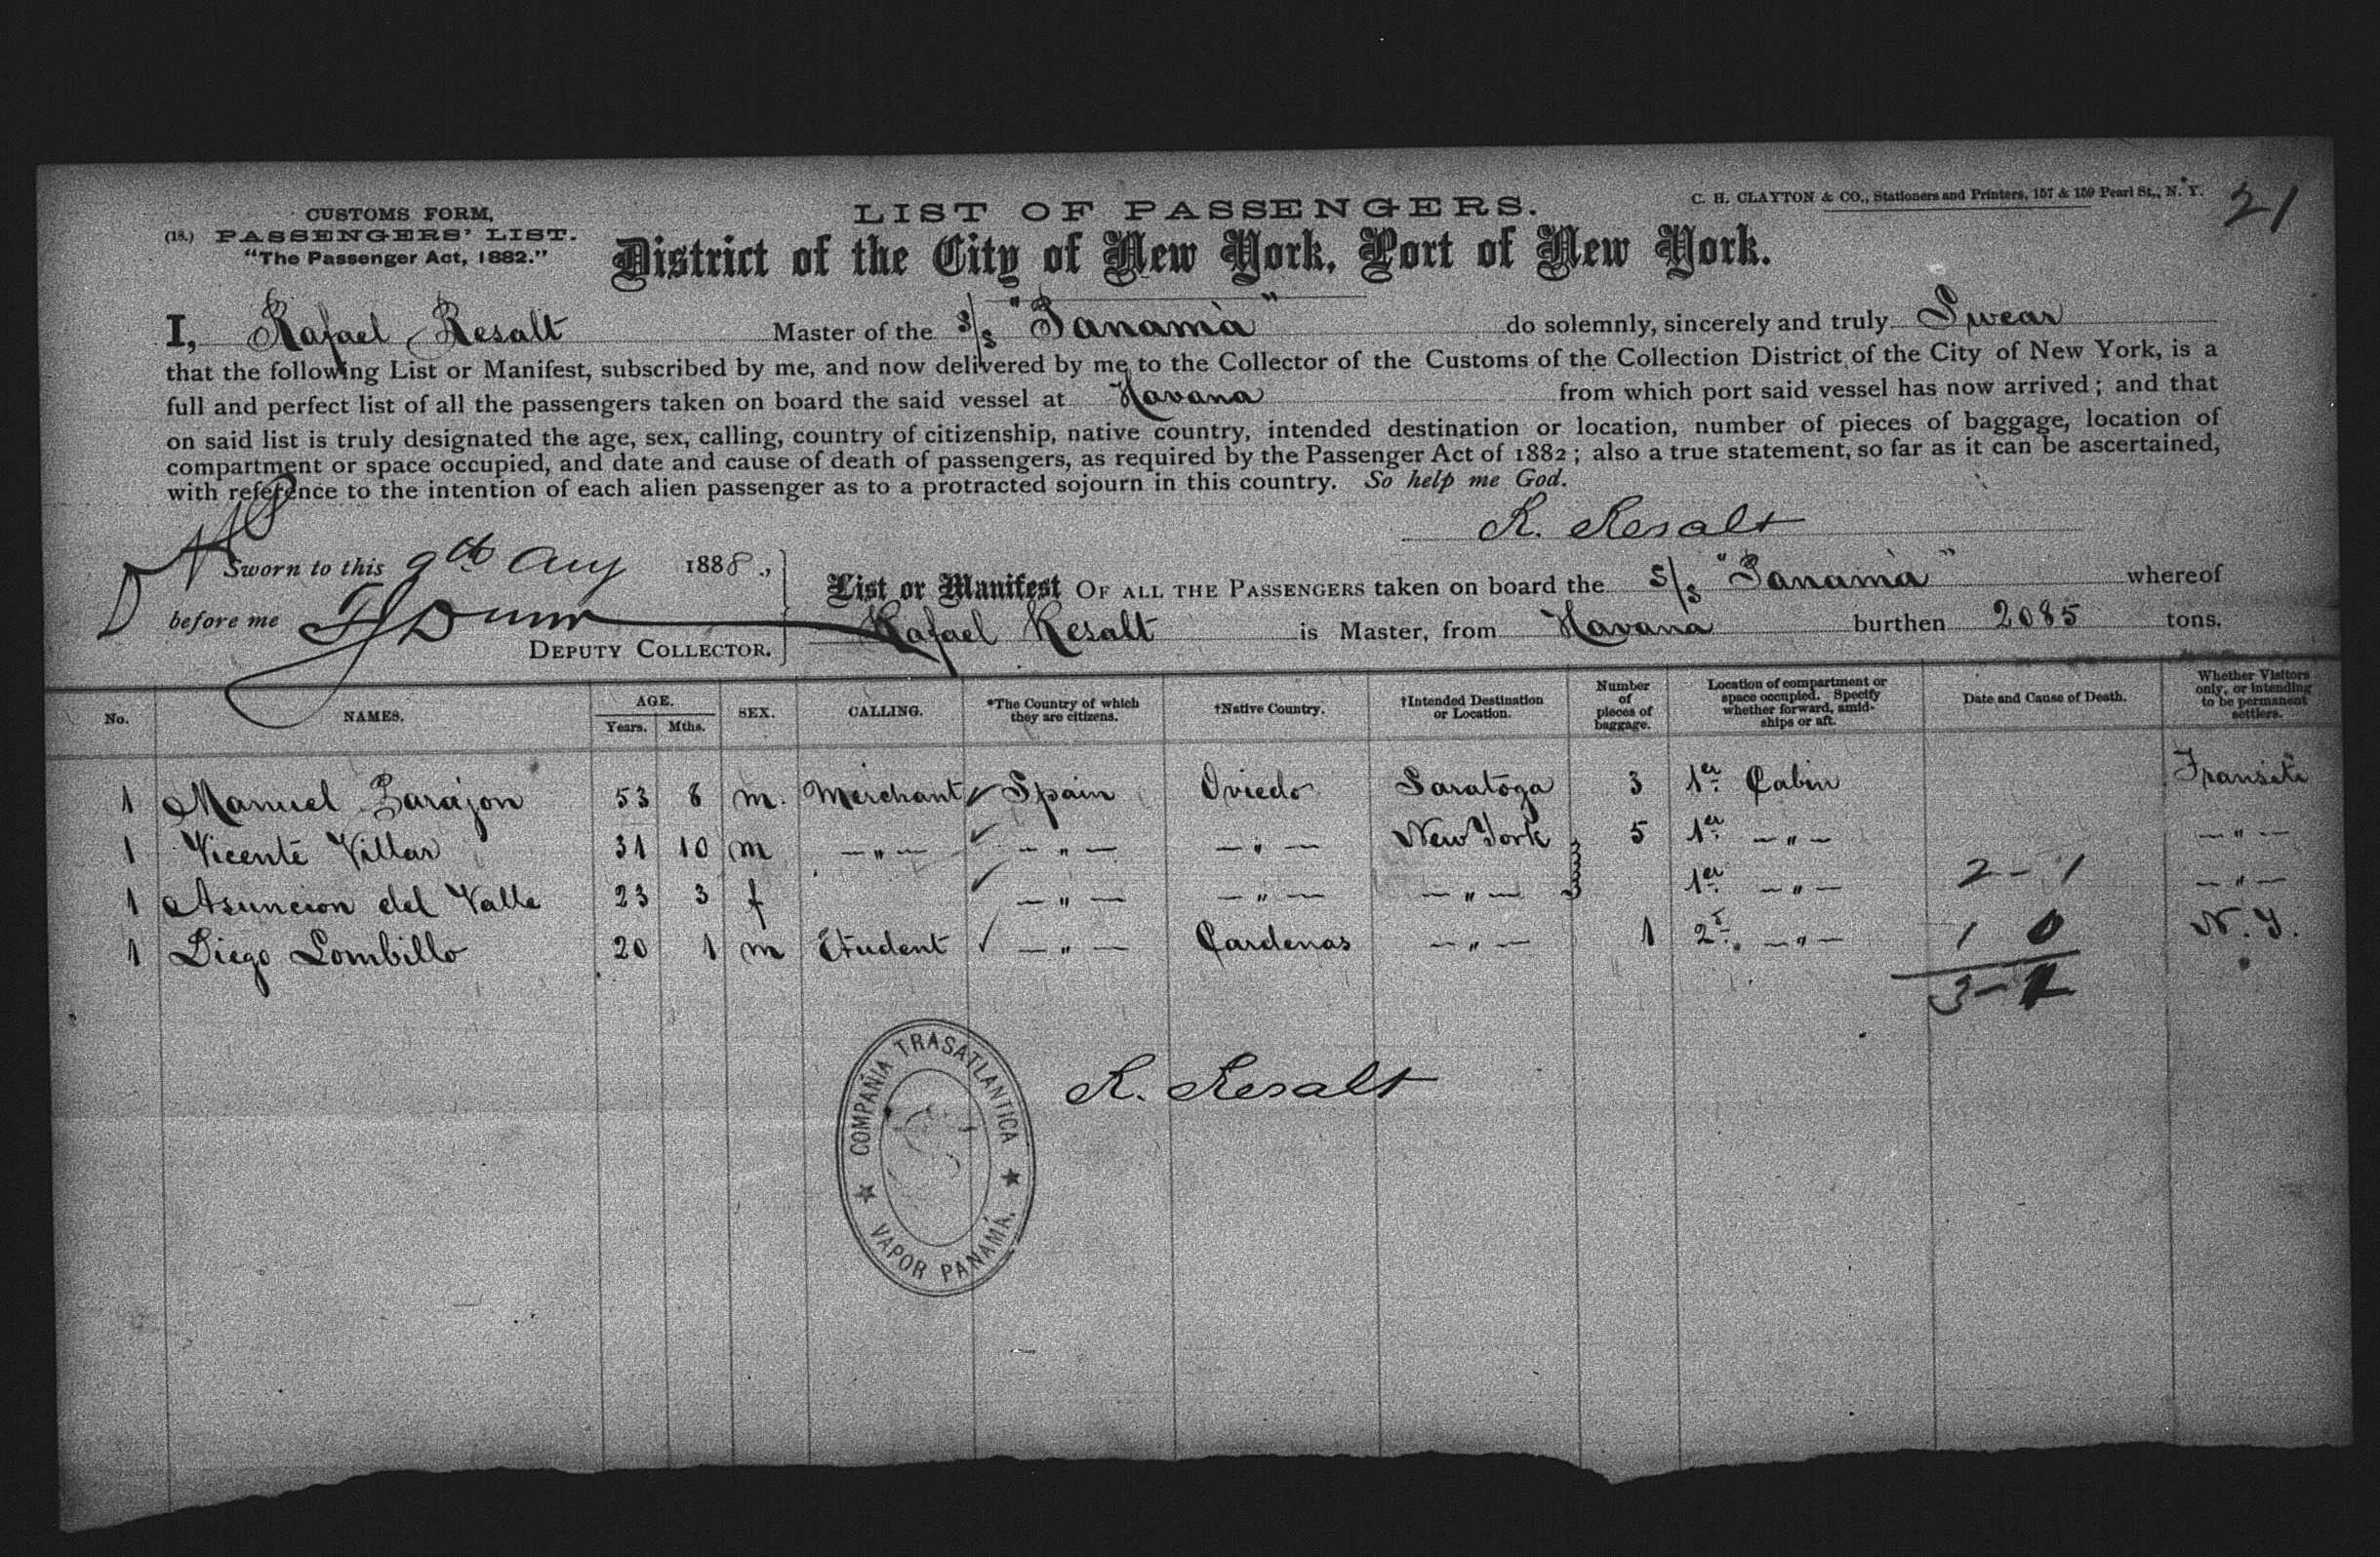 CUSTOMS FORM,
(18.) PASSENGERS' LIST.
"The Passenger Act, 1882."
LIST OF PASSENGERS.
C. H. CLAYTON & CO., Stationers and Printers, 157 & 159 Pearl St., N. Y.
21
District of the City of New York, Port of New York.
I, Rafael Resalt Master of the S/S "Panamà" do solemnly, sincerely and truly Swear
that the following List or Manifest, subscribed by me, and now delivered by me to the Collector of the Customs of the Collection District of the City of New York, is a
full and perfect list of all the passengers taken on board the said vessel at Havana from which port said vessel has now arrived; and that
on said list is truly designated the age, sex, calling, country of citizenship, native country, intended destination or location, number of pieces of baggage, location of
compartment or space occupied, and date and cause of death of passengers, as required by the Passenger Act of 1882; also a true statement, so far as it can be ascertained,
with reference to the intention of each alien passenger as to a protracted sojourn in this country. So help me God.
R. Resalt
Sworn to this 9th Aug 1888.,
before me
DEPUTY COLLECTOR.
List or Manifest OF ALL THE PASSENGERS taken on board the S/S "Panamà" whereof
Rafael Resalt is Master, from Havana burthen 2085 tons.
No. NAMES. AGE. Years. Mths. SEX. CALLING. *The Country of which they are citizens. †Native Country. †Intended Destination or Location. Number of pieces of baggage. Location of compartment or space occupied. Specify whether forward, amidships or aft. Date and Cause of Death. Whether Visitors only, or intending to be permanent settlers.
1 Manuel Parajon 53 8 m. Merchant ✓ Spain Oviedo Saratoga 3 1er Cabin Transite
1 Vicente Villar 31 10 m — " — ✓ — " — — " — New York 5 1er — " — — " —
1 Asuncion del Valle 23 3 f ✓ — " — — " — — " — 1er — " — 2 - 1 — " —
1 Diego Lombillo 20 1 m Student ✓ — " — Cardenas — " — 1 2ª — " — 1 0 N. Y.
3 - 1
R. Resalt
COMPAÑIA TRASATLANTICA
★ VAPOR PANAMÁ. ★